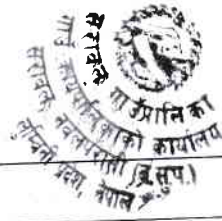 सरावल
गाउँपालिका
गाउँ कार्यपालिकाको कार्यालय
सरावल, नवलपरासी (ब.सु.प.)
लुम्बिनी प्रदेश, नेपाल